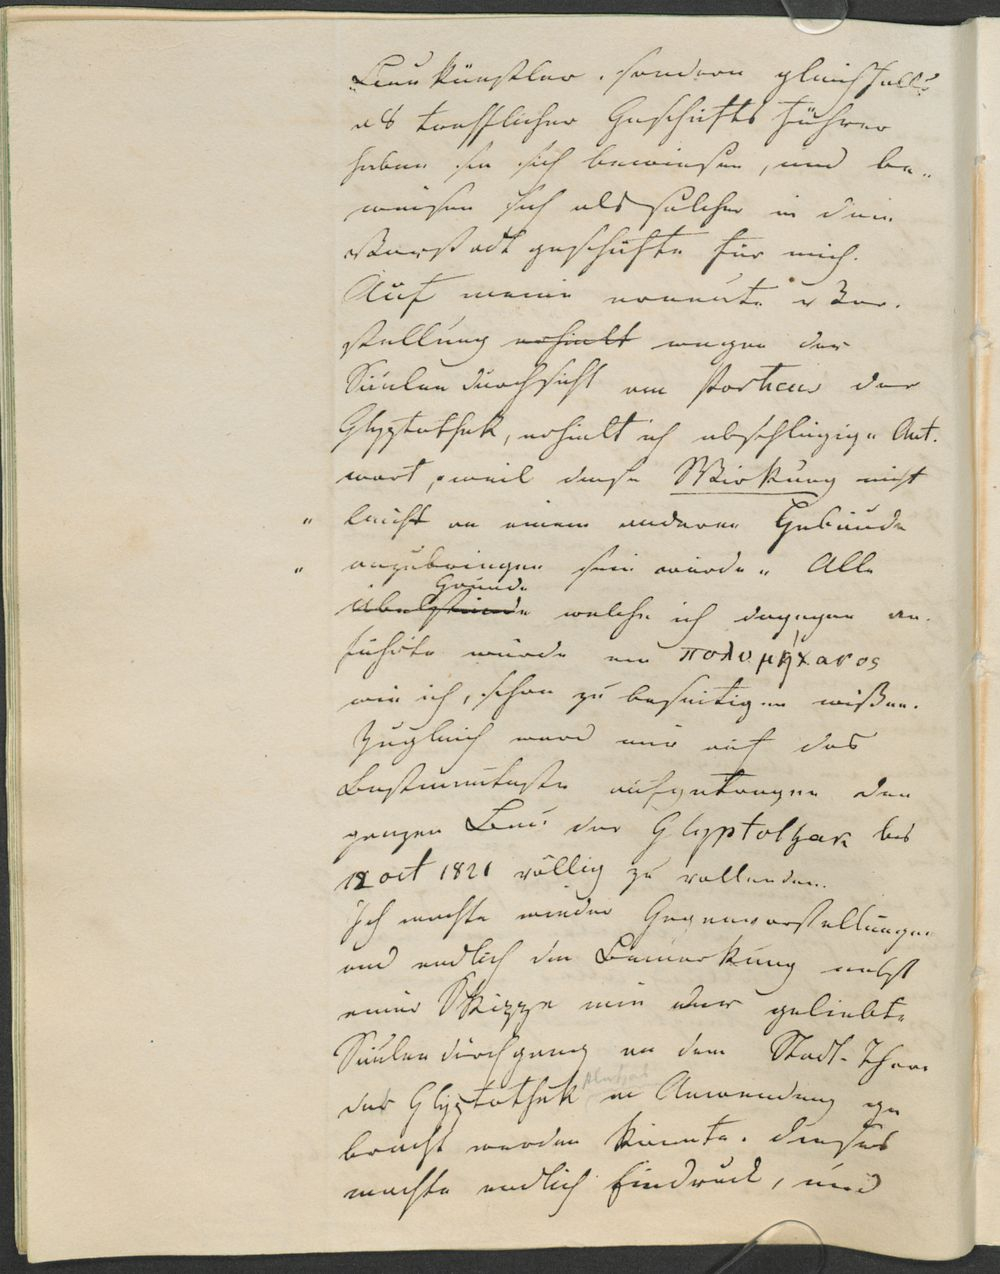 Baukünstler. sondern gleichfalls
als trefflicher Geschäfts führer
haben sie sich bewiesen, und be-
weisen sich als solcher in dem
Vorstadt geschäfte für mich.
Auf meine erneute Vor-
stellung erhielt wegen der
Säulen durchsicht am Porticus der
Glyptothek, erhielt ich abschlägige Ant-
wort, „weil diese Wirkung nicht
„ leicht an einem anderen Gebäude
„ anzubringen sein würde„ Alle
Gründe
Übelstände welche ich dagegen an-
führte würde ein πολυμήχανος
wie ich, schon zu beseitigen wißen.
Zugleich ward mir auf das
Bestimmteste aufgetragen den
ganzen Bau der Glyptothek bis
12 oct 1821 völlig zu vollenden.
Ich machte wieder Gegenvorstellungen
und endlich die Bemerkung nebst
einer Skizze wie der geliebte
Säulen durchgang an dem Stadt-Thore
des Glyptothek in Anwendung ge
platzes
bracht werden könnte. dieses
machte endlich Eindruck, und